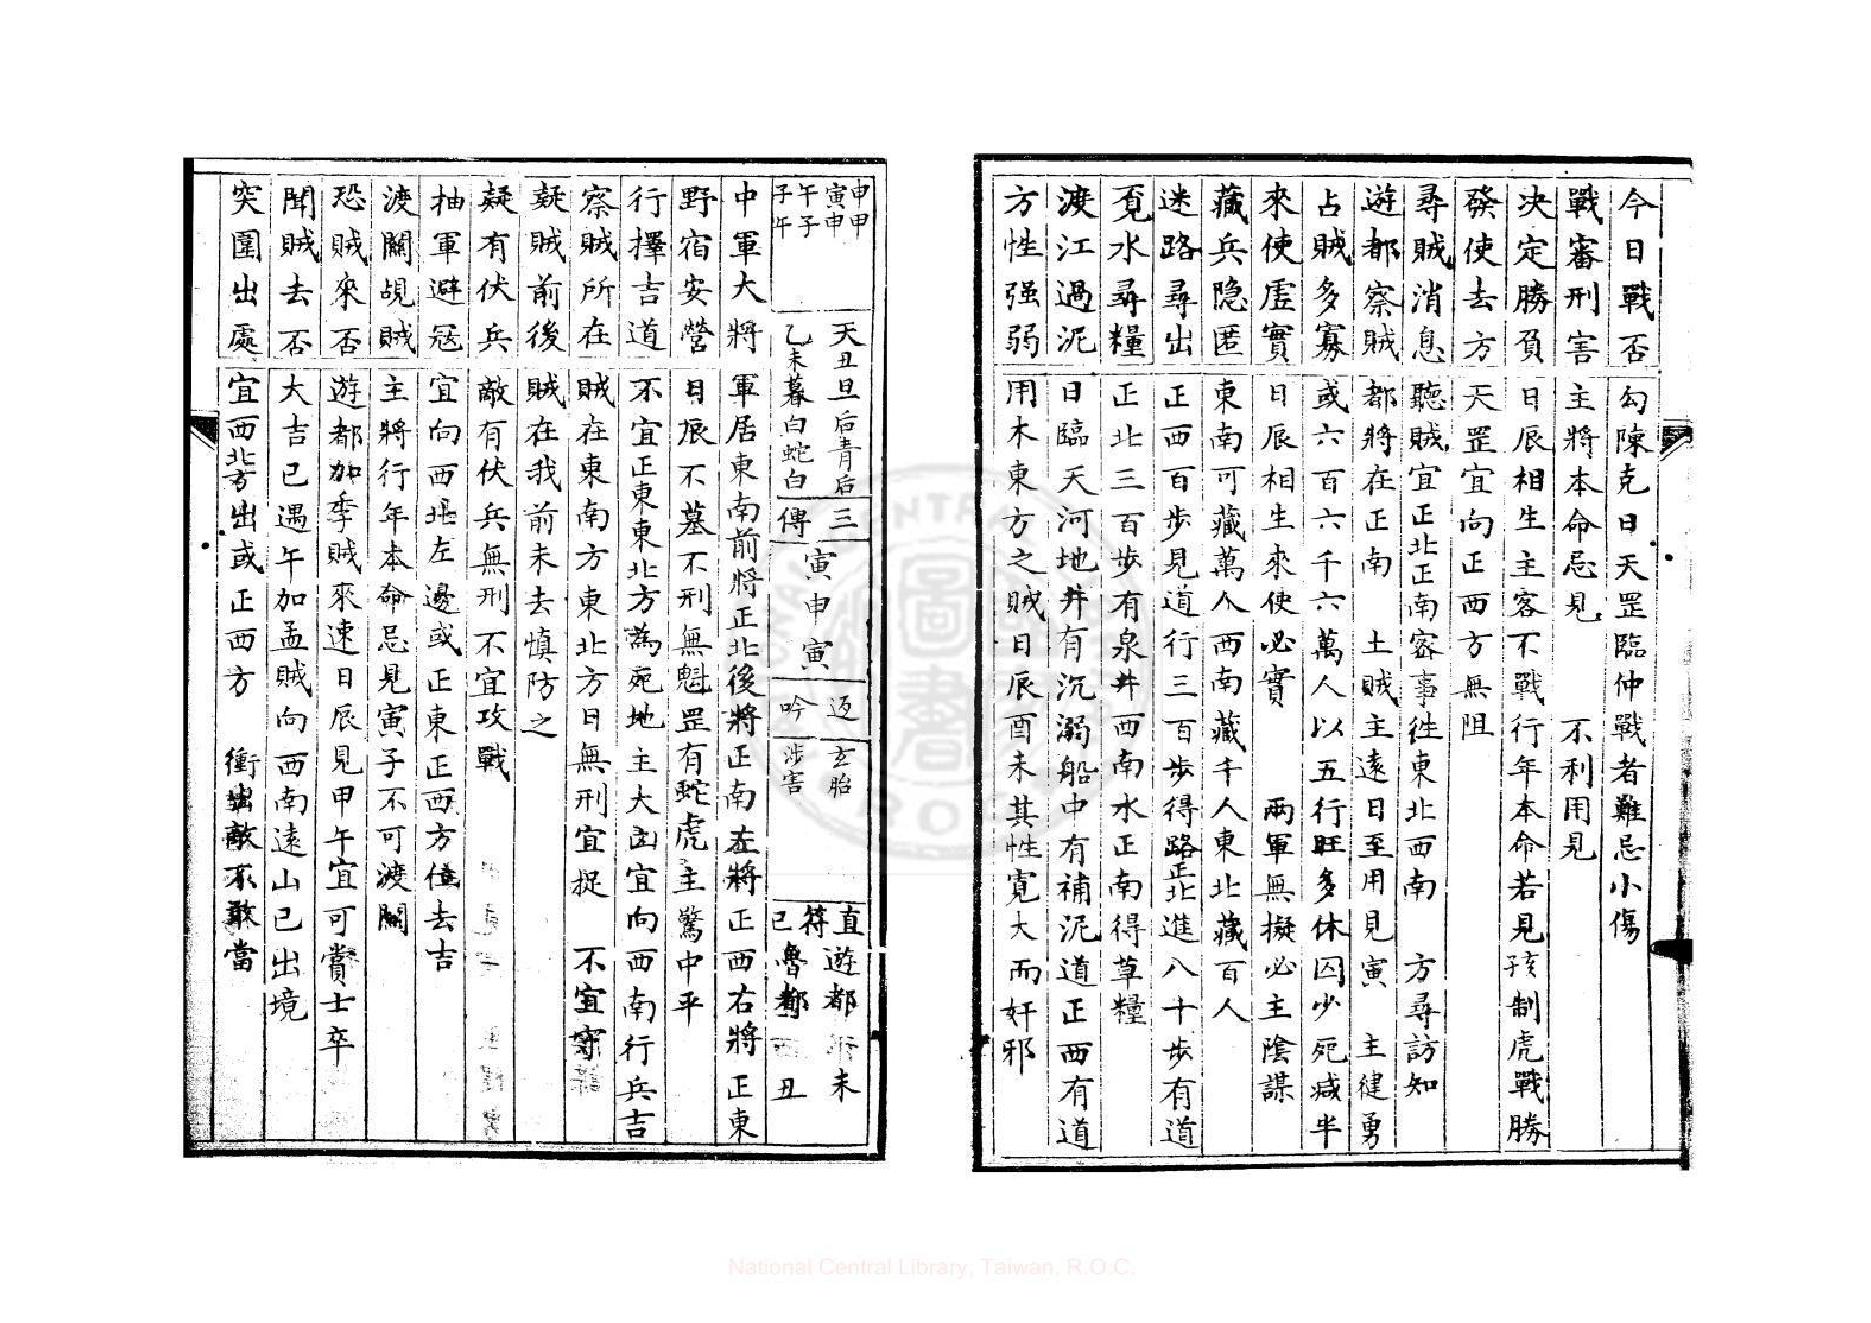 今日戰否 勾陳克日天罡臨仲戰者難忌小傷
戰審刑害 主將本命忌見 不利用見
决定勝負 日辰相生主客不戰行年本命若見孩制虎戰勝
發使去方 天罡宜向正西方無阻
尋賊消息 聽賊宜正北正南容事徃東北西南 方尋訪知
遊都察賊 都將在正南 土賊主遠日至用見寅 主徤勇
占賊多寡 或六百六千六萬人以五行旺多休囚少死减半
來使虛實 日辰相生來使必實 兩軍無擬必主陰謀
藏兵隐匿 東南可藏萬人西南藏千人東北藏百人
迷路尋出 正西百步見道行三百步得路正北進八十步有道
覔水尋糧 正北三百步有泉井西南水正南得草糧
渡江過泥 日臨天河地井有沉溺船中有補泥道正西有道
方性强弱 用木東方之賊日辰酉未其性寛大而奸邪
申甲
寅申
午子
子午
天丑旦后青后
乙未暮白蛇白
三傳
寅申寅
返吟
玄胎
涉害
直符巳
遊都 未
魯都 丑
中軍大將 軍居東南前將正北後將正南左將正西右將正東
野宿安營 日辰不墓不刑無魁罡有蛇虎主驚中平
行擇吉道 不宜正東東北方為死地主大凶宜向西南行兵吉
察賊所在 賊在東南方東北方日無刑宜捉 不宜守
疑賊前後 賊在我前未去慎防之
疑有伏兵 敵有伏兵無刑不宜攻戰
抽軍避冦 宜向西北左邊或正東正西方位去吉
渡關覘賊 主將行年本命忌見寅子不可渡關
恐賊來否 遊都加季賊來速日辰見甲午宜可賞士卒
聞賊去否 大吉已過午加孟賊向西南遠山已出境
突圍出處 宜西北方出或正西方 衝出敵不敢當
National Central Library, Taiwan, R.O.C.